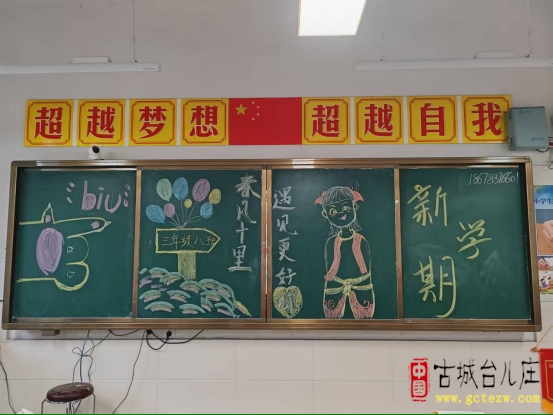 超越梦想 超越自我
biu
三年级八班
春风十里
遇见更好
新学期
小学生
中国
古城台儿庄
www.gctezw.com